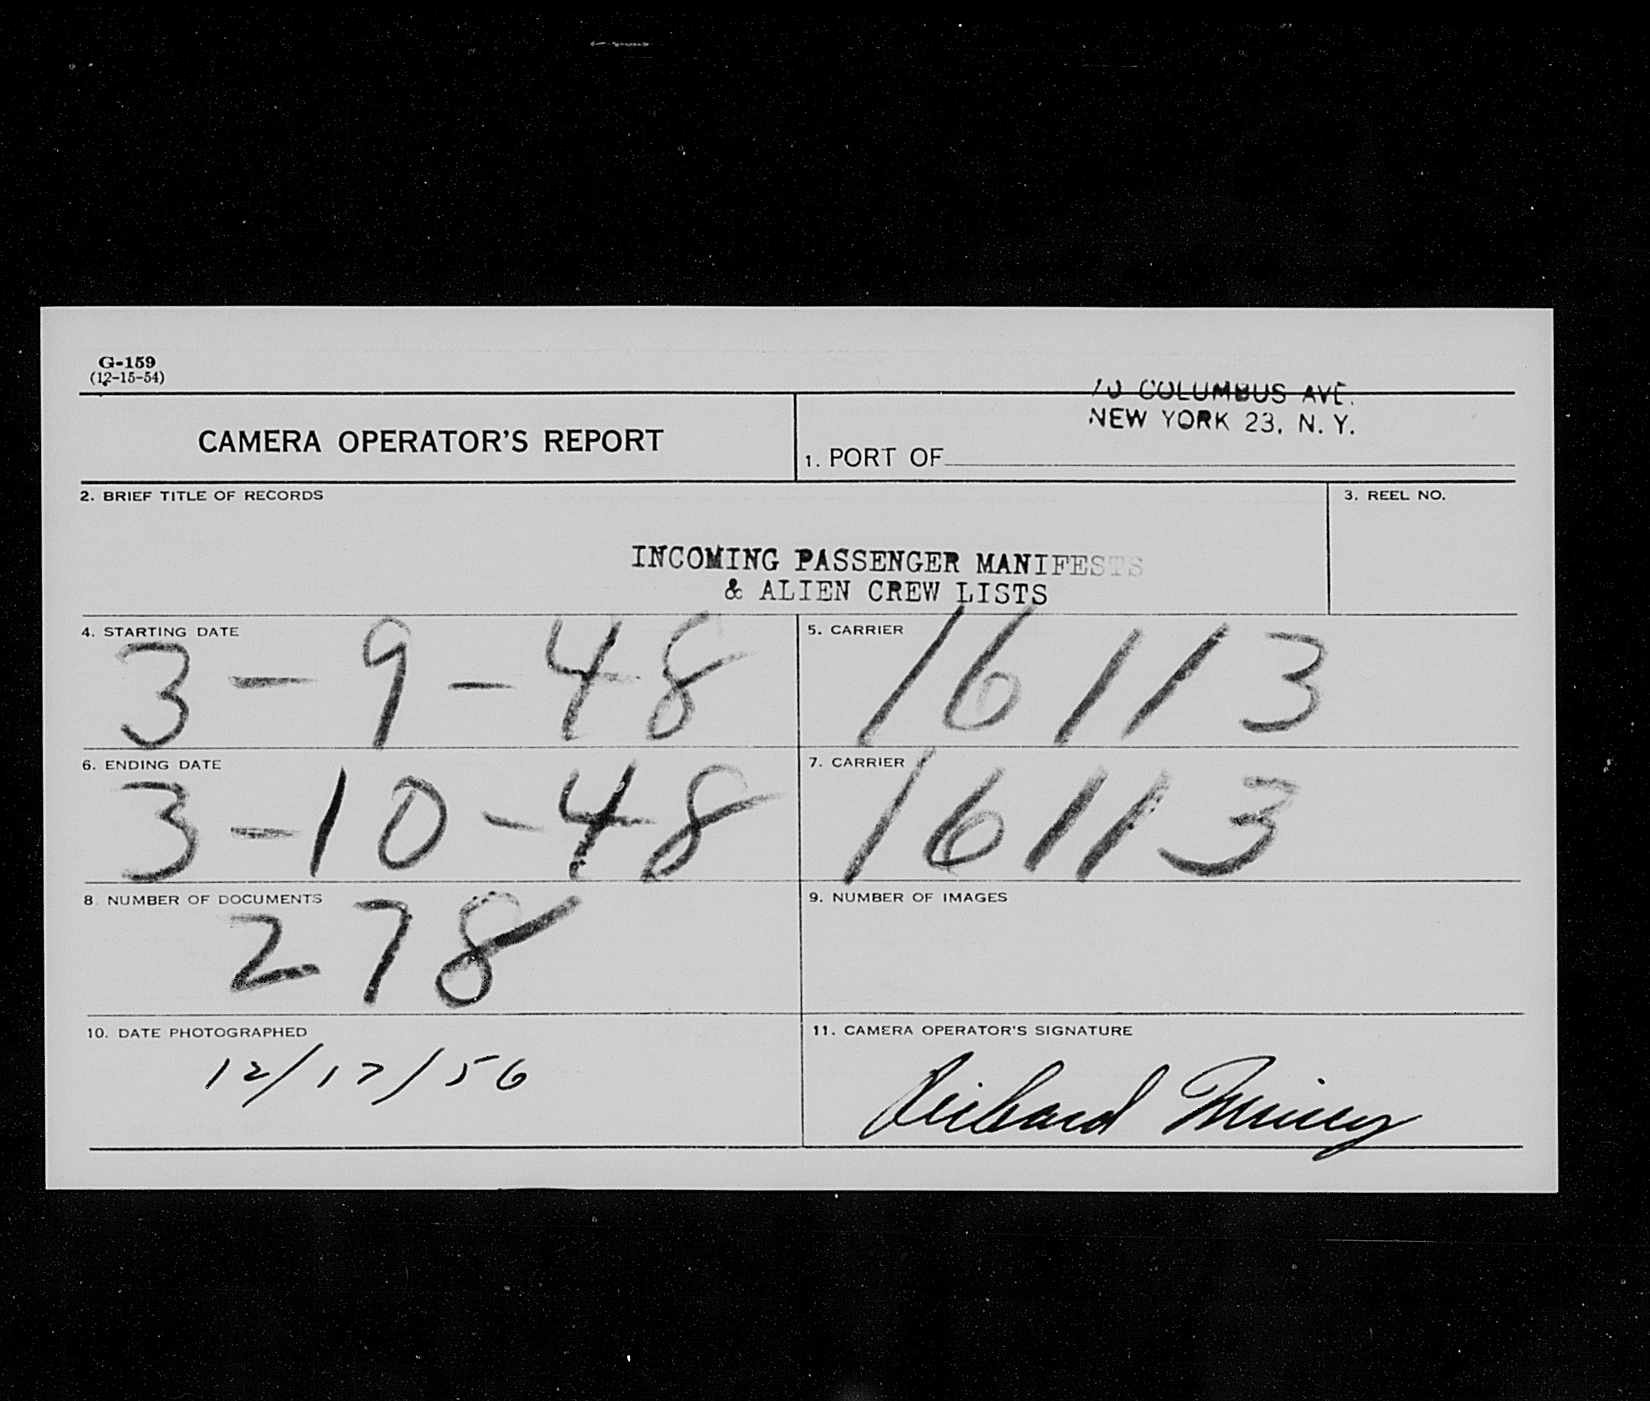 G-159
(12-15-54)
70 COLUMBUS AVE.
NEW YORK 23, N. Y.
CAMERA OPERATOR'S REPORT
1. PORT OF
2. BRIEF TITLE OF RECORDS
3. REEL NO.
INCOMING PASSENGER MANIFESTS
& ALIEN CREW LISTS
4. STARTING DATE
3-9-48
5. CARRIER
16113
6. ENDING DATE
3-10-48
7. CARRIER
16113
8. NUMBER OF DOCUMENTS
278
9. NUMBER OF IMAGES
10. DATE PHOTOGRAPHED
12/17/56
11. CAMERA OPERATOR'S SIGNATURE
Richard